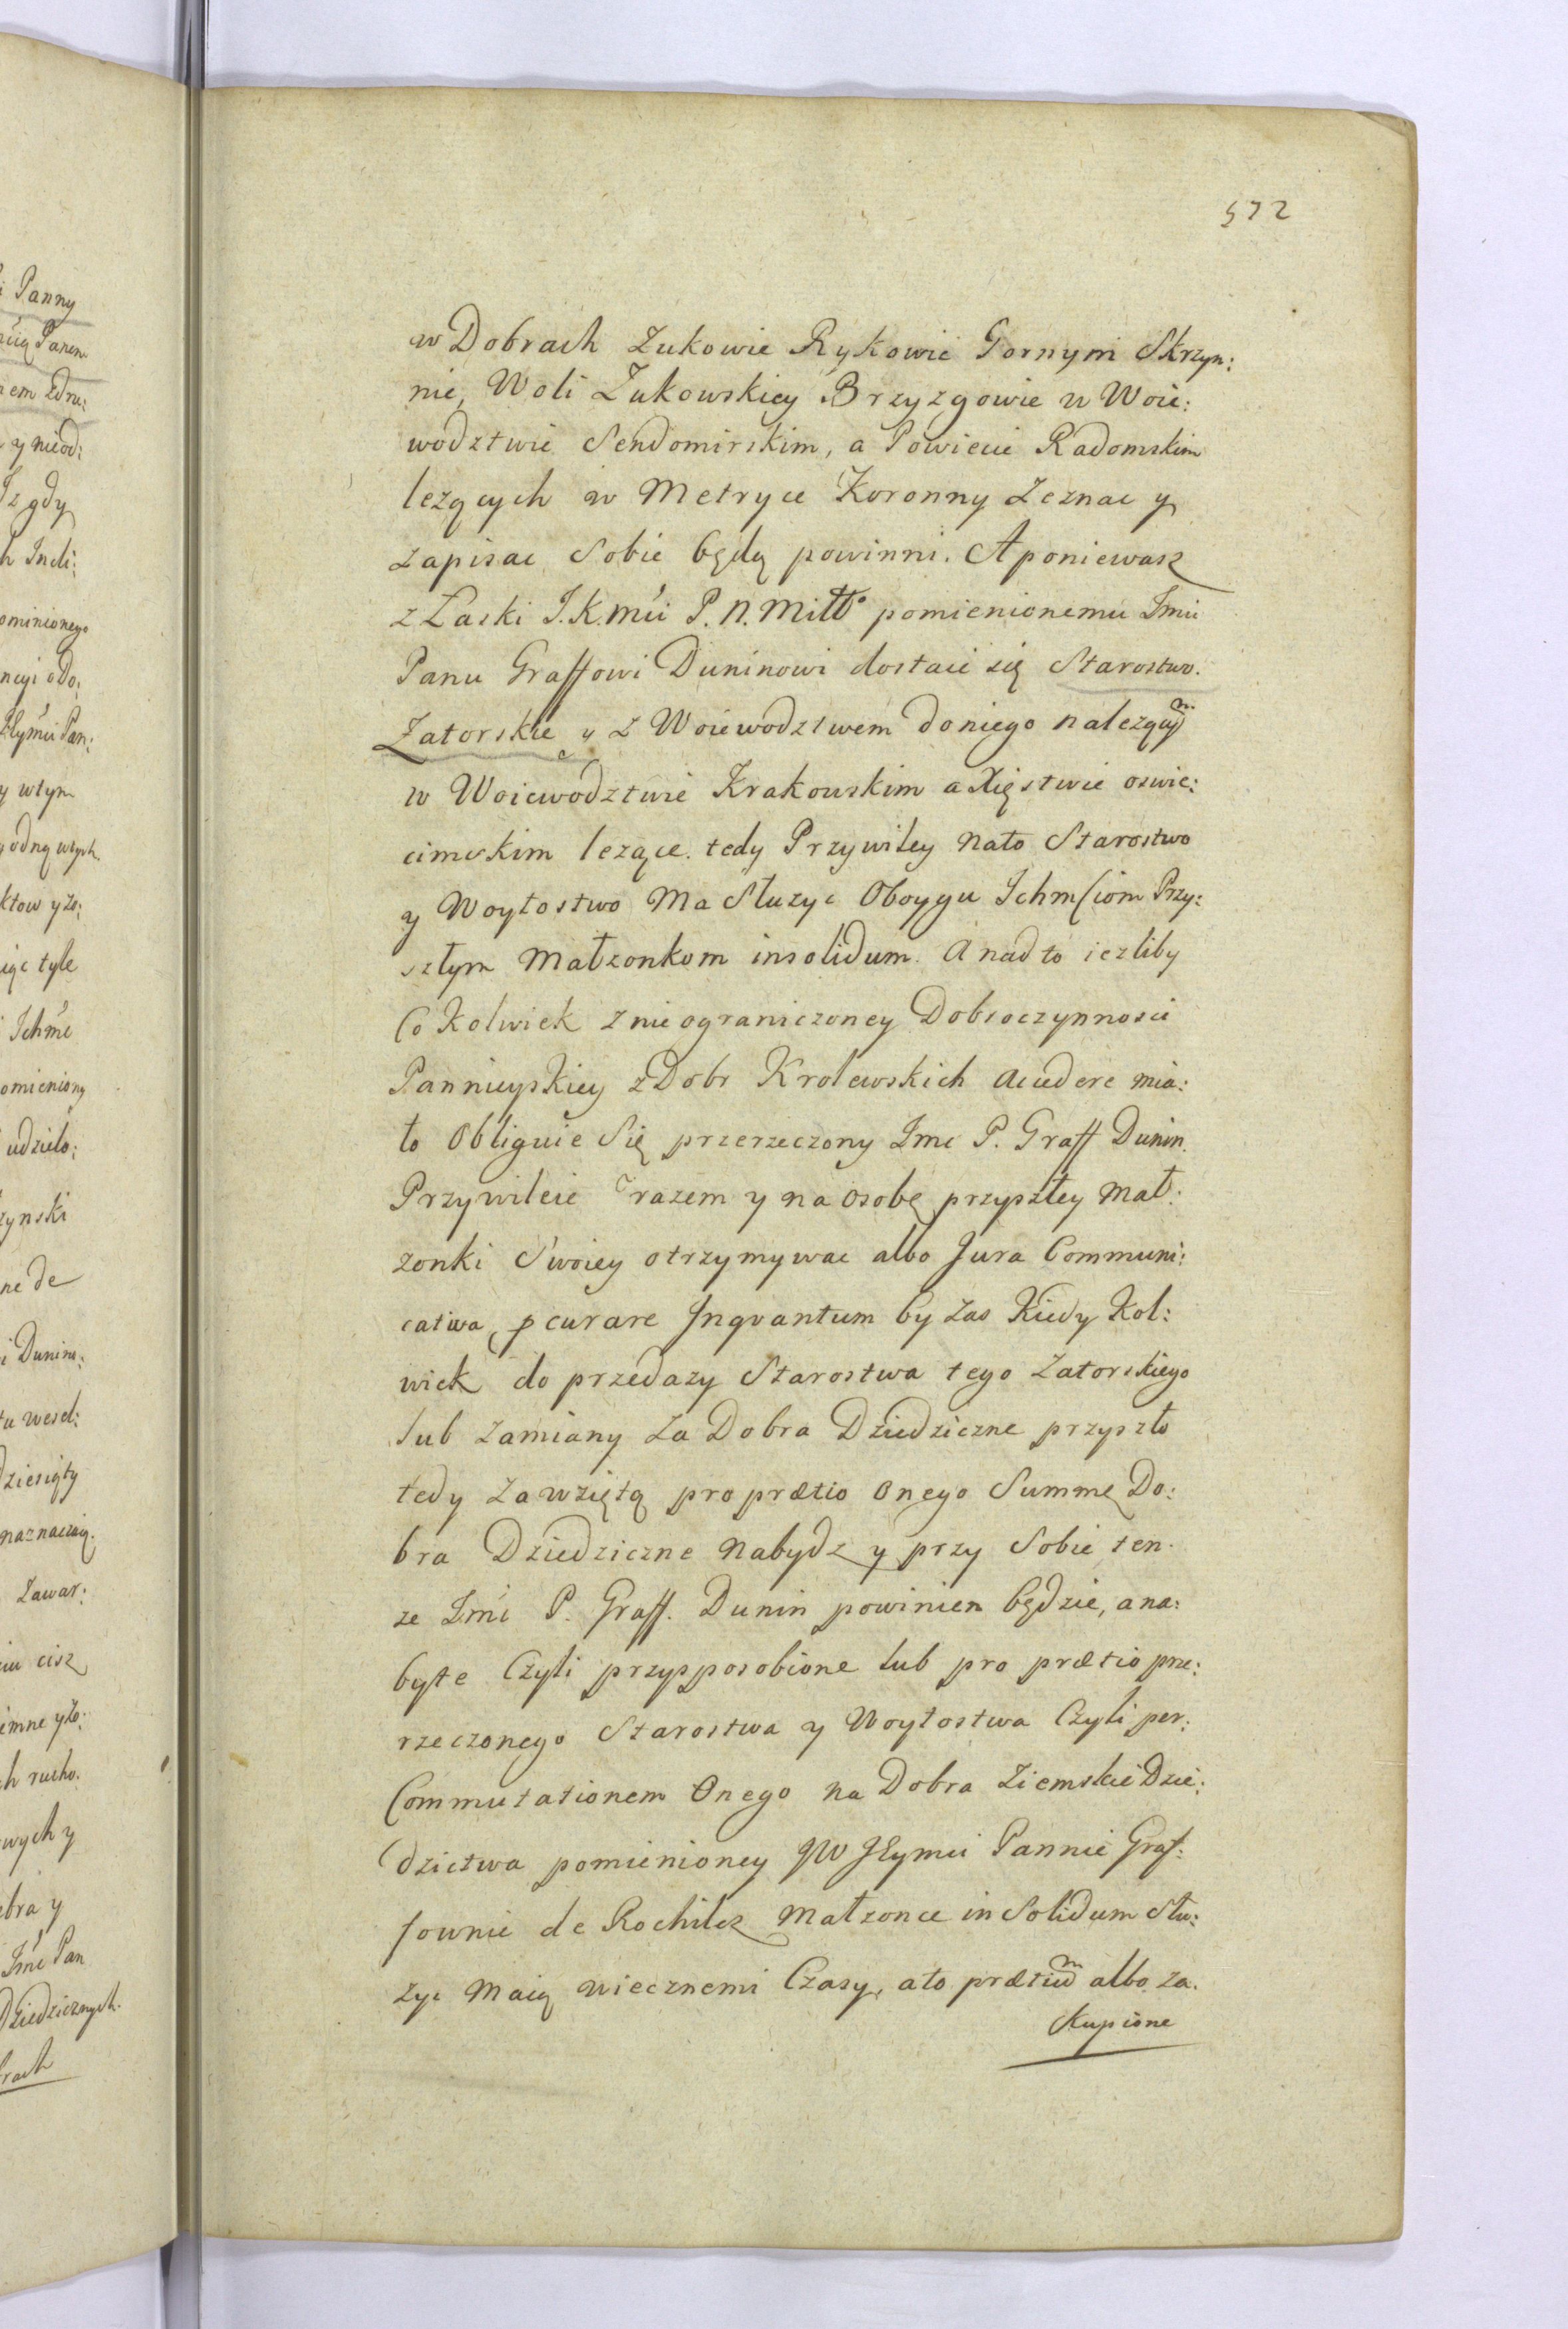 572
w Dobrach Zukowie Rykowie Gornym Skrzyn:
nie, Woli Zukowskiey Brzyzgowie w Woie:
wodztwie Sendomirskim, a Powiecie Radomskim
lezących w Metryce Koronny Zeznac y
zapisac Sobie będą powinni. A poniewasz
z Łaski J.K.Mci P.N.Miłło pomienionemu Jmci
Panu Graffowi Duninowi dostaie się Starostwo
Zatorskie y z Woiewodztwem do niego nalezącym
w Woiewodztwie Krakowskim a Xięstwie oswie:
cimskim lezące. tedy Przywiley na to Starostwo
y Woytostwo Ma Służyc Oboygu Ichmciom Przy:
szłym Małzonkom in solidum. A nad to iezliby
Co Kolwiek z nieograniczoney Dobroczynnosci
Pannieyskiey z Dobr Krolewskich accedere mia:
ło Obliguie Się przerzeczony Jmc P. Graff Dunin
Przywileie razem y na osobę przyszłey Mał:
zonki Swoiey otrzymywac albo Jura Communi:
cativa pcurare Inqvantum by zas Kiedy Kol:
wiek do przedazy Starostwa tego Zatorskiego
lub Zamiany za Dobra Dziedziczne przyszło
tedy za wziętą pro prætio Onego Summę Do:
bra Dziedziczne Nabydz y przy Sobie ten
ze Jmć P. Graff. Dunin powinien będzie, a na:
byte Czyli przysposobione lub pro prætio prze:
rzeczonego Starostwa y Woytostwa Czyli per:
Commutationem Onego na Dobra Ziemskie Dzie:
dzictwa pomienioney JW Jeymci Pannie Graf:
fownie de Rochilcz Małzonce in Solidum Słu:
zyc Maią wiecznemi Czasy, a to prætium albo za:
Kupione
i Panny
Panem
y nieod:
Iz gdy
h Indi:
ominionego
y wtym
iąc tyle
Ichmć
omieniony
udzielo:
zynski
ne de
i Dunin:
tu wesel:
dziesięty
naznaczaią:
Zawar:
ciu cisz
ch rucho:
wych y
bra y
Jmć Pan
Dziedzicznych
brach